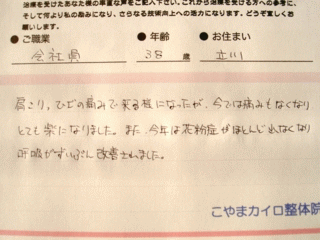 治療を受けたあなた様の率直な声をご記入下さい。これから治療を受ける方への参考に、
そして何より私の励みになり、さらなる技術向上への活力になります。どうぞ宜しくお
願いします。
●ご職業 ●年齢 ●お住まい
会社員 38歳 立川
肩こり、ひざの痛みで来る様になったが、今では痛みもなくなり
とても楽になりました。また、今年は花粉症がほとんどなくなり
呼吸がずいぶん改善されました。
こやまカイロ整体院